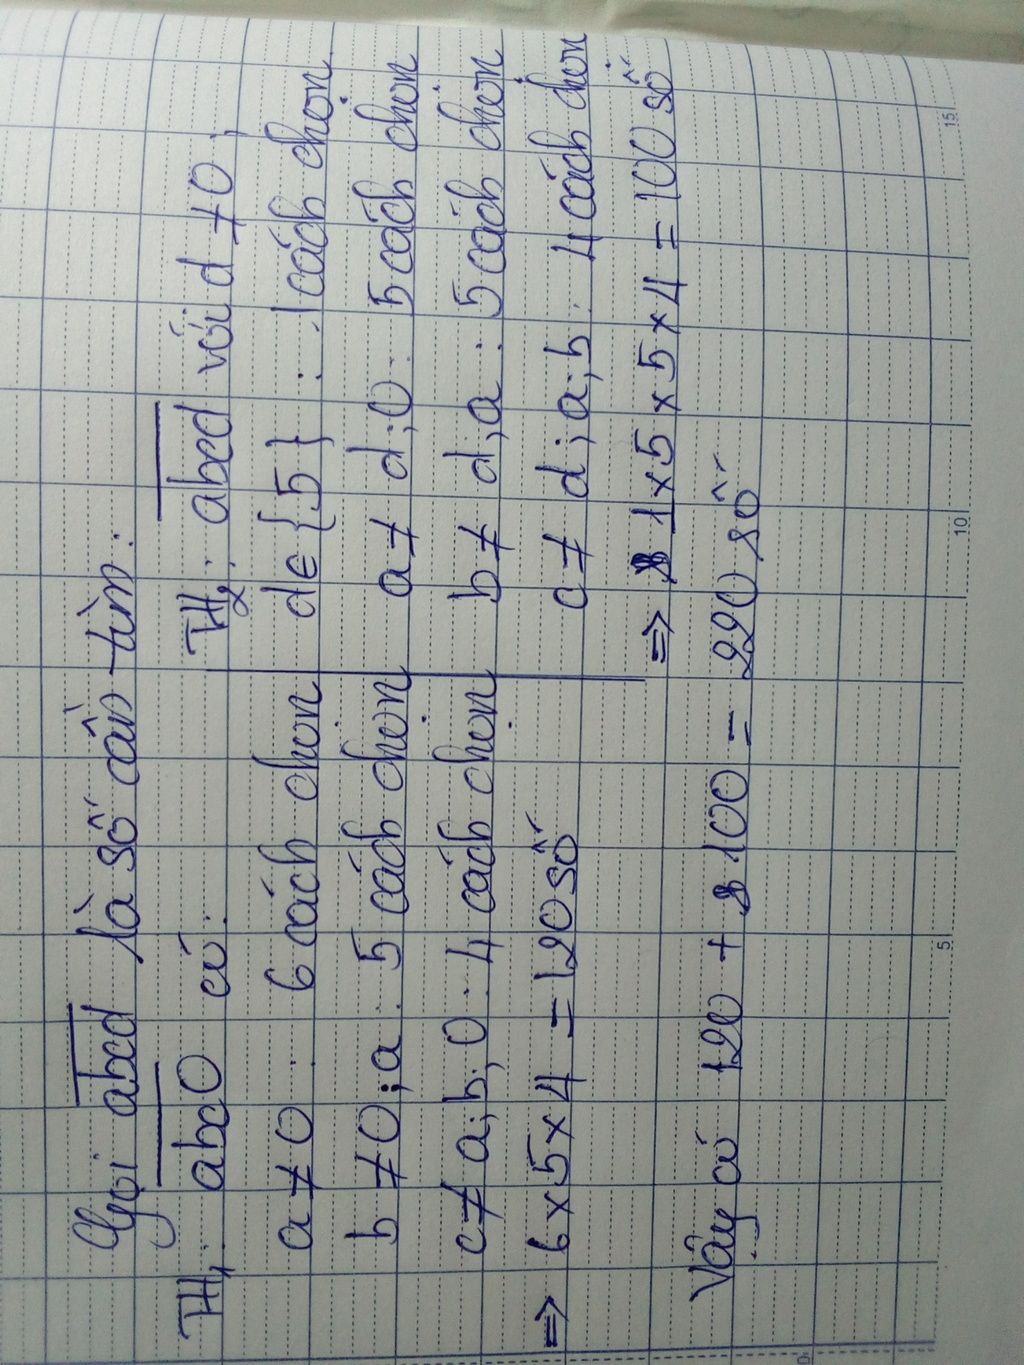 Gọi abcd là số cần tìm:
TH1: abc0 có:
a ≠ 0 : 6 cách chọn
b ≠ 0; a : 5 cách chọn
c ≠ a; b; 0 : 4 cách chọn
⇒ 6 x 5 x 4 = 120 số
TH2: abcd với d ≠ 0;
d ∈ {5} : 1 cách chọn
a ≠ d; 0 : 5 cách chọn
b ≠ d; a : 5 cách chọn
c ≠ d; a; b : 4 cách chọn
⇒ 1 x 5 x 5 x 4 = 100 số
Vậy có 120 + 100 = 220 số
0 5 10 15